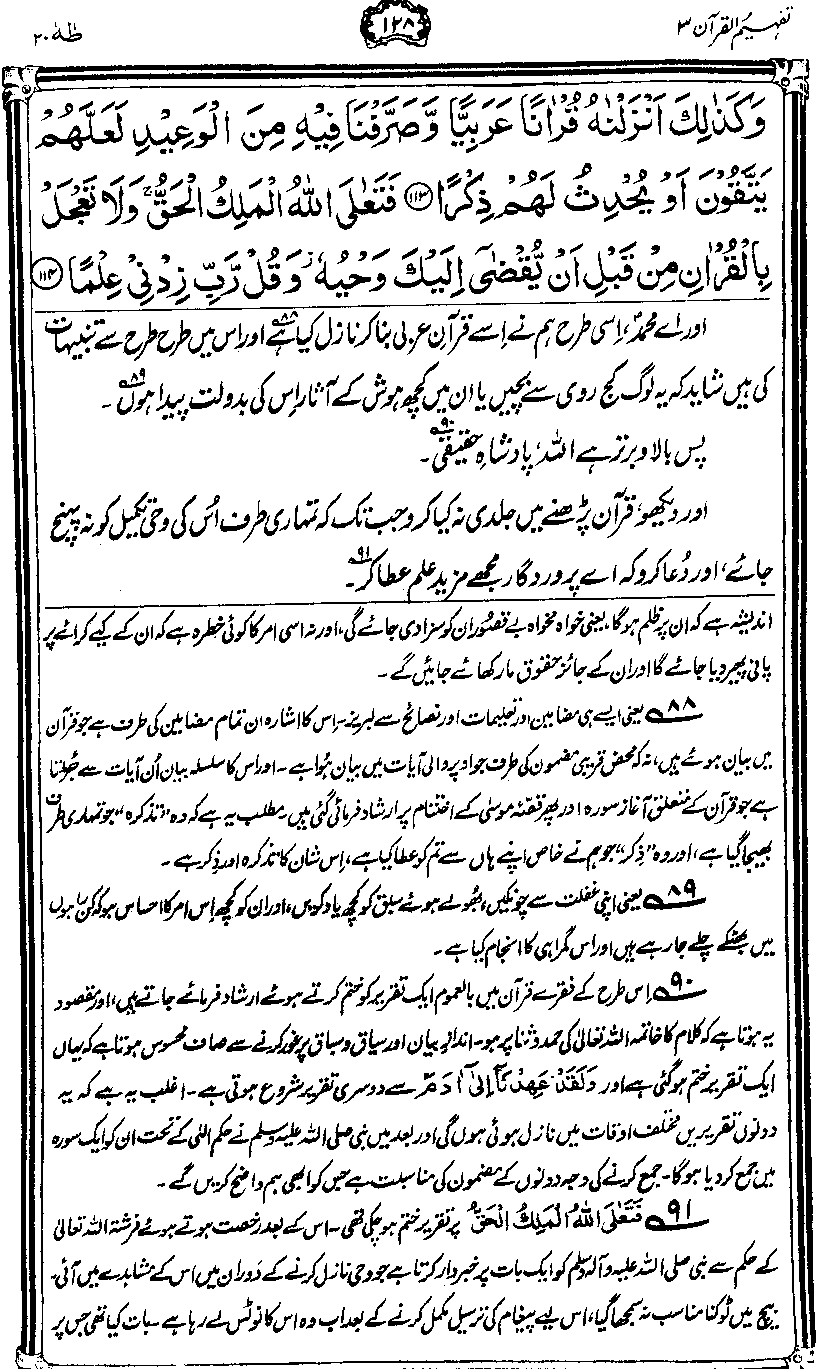 تفہیم القرآن ۳
۱۲۸
طٰهٰ ۲۰
وَكَذٰلِكَ اَنْزَلْنٰهُ قُرْاٰنًا عَرَبِيًّا وَّصَرَّفْنَا فِيْهِ مِنَ الْوَعِيْدِ لَعَلَّهُمْ
يَتَّقُوْنَ اَوْ يُحْدِثُ لَهُمْ ذِكْرًا ﴿۱۱۳﴾ فَتَعٰلَى اللّٰهُ الْمَلِكُ الْحَقُّ ۚ وَلَا تَعْجَلْ
بِالْقُرْاٰنِ مِنْ قَبْلِ اَنْ يُّقْضٰٓى اِلَيْكَ وَحْيُهٗ ۡ وَقُلْ رَّبِّ زِدْنِيْ عِلْمًا ﴿۱۱۴﴾
اور اے محمدؐ، اِسی طرح ہم نے اِسے قرآنِ عربی بنا کر نازل کیا ہے ۸۸ اور اس میں طرح طرح سے تنبیہات
کی ہیں شاید کہ یہ لوگ کج روی سے بچیں یا ان میں کچھ ہوش کے آثار اِس کی بدولت پیدا ہوں ۸۹۔
پس بالا و برتر ہے اللہ، پادشاہِ حقیقی ۹۰۔
اور دیکھو، قرآن پڑھنے میں جلدی نہ کیا کرو جب تک کہ تمہاری طرف اُس کی وحی تکمیل کو نہ پہنچ
جائے، اور دُعا کرو کہ اے پروردگار مجھے مزید علم عطا کر ۹۱۔
اندیشہ ہے کہ ان پر ظلم ہوگا، یعنی خواہ مخواہ بے قصور ان کو سزا دی جائے گی، اور نہ اسی امر کا کوئی خطرہ ہے کہ ان کے کیے کرائے پر
پانی پھیر دیا جائے گا اور ان کے جائز حقوق مار کھائے جائیں گے۔
۸۸ یعنی ایسے ہی مضامین اور تعلیمات اور نصائح سے لبریز۔ اِس کا اشارہ ان تمام مضامین کی طرف ہے جو قرآن
میں بیان ہوئے ہیں، نہ کہ محض قریبی مضمون کی طرف جو اوپر والی آیات میں بیان ہوا ہے۔ اور اس کا سلسلۂ بیان اُن آیات سے جُڑتا
ہے جو قرآن کے متعلق آغازِ سورہ اور پھر قصۂ موسیٰ کے اختتام پر ارشاد فرمائی گئی ہیں۔ مطلب یہ ہے کہ وہ ”تذکرہ“ جو تمہاری طرف
بھیجا گیا ہے، اور وہ ”ذِکر“ جو ہم نے خاص اپنے ہاں سے تم کو عطا کیا ہے، اِس شان کا تذکرہ اور ذِکر ہے۔
۸۹ یعنی اپنی غفلت سے چونکیں، بھولے ہوئے سبق کو کچھ یاد کریں، اور ان کو کچھ اِس امر کا احساس ہو کہ کن راہوں
میں بھٹکے چلے جا رہے ہیں اور اس گمراہی کا انجام کیا ہے۔
۹۰ اِس طرح کے فقرے قرآن میں بالعموم ایک تقریر کو ختم کرتے ہوئے ارشاد فرمائے جاتے ہیں، اور مقصود
یہ ہوتا ہے کہ کلام کا خاتمہ اللہ تعالیٰ کی حمد و ثنا پر ہو۔ اندازِ بیان اور سیاق و سباق پر غور کرنے سے صاف محسوس ہوتا ہے کہ یہاں
ایک تقریر ختم ہو گئی ہے اور وَلَقَدْ عَهِدْنَآ اِلٰٓى اٰدَمَ سے دوسری تقریر شروع ہوتی ہے۔ اغلب یہ ہے کہ یہ
دونوں تقریریں مختلف اوقات میں نازل ہوئی ہوں گی اور بعد میں نبی صلی اللہ علیہ وسلم نے حکم الٰہی کے تحت ان کو ایک سورہ
میں جمع کر دیا ہوگا۔ جمع کرنے کی وجہ دونوں کے مضمون کی مناسبت ہے جس کو ابھی ہم واضح کریں گے۔
۹۱ فَتَعٰلَى اللّٰهُ الْمَلِكُ الْحَقُّ پر تقریر ختم ہو چکی تھی۔ اس کے بعد رخصت ہوتے ہوئے فرشتہ اللہ تعالیٰ
کے حکم سے نبی صلی اللہ علیہ وآلہ وسلم کو ایک بات پر خبردار کرتا ہے جو وحی نازل کرنے کے دَوران میں اس کے مشاہدے میں آئی۔
بیچ میں ٹوکنا مناسب نہ سمجھا گیا، اس لیے پیغام کی ترسیل مکمل کرنے کے بعد اب وہ اس کا نوٹس لے رہا ہے۔ بات کیا تھی جس پر